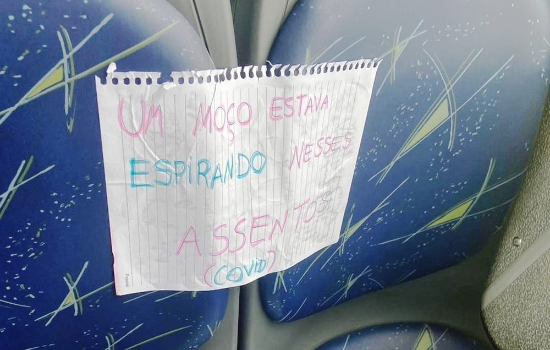 UM MOÇO ESTAVA
ESPIRANDO NESSES
ASSENTOS
(COVID)